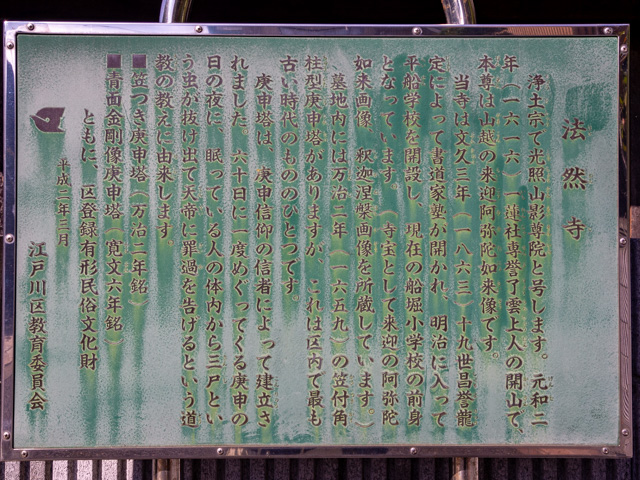 法然寺
浄土宗で光照山影尊院と号します。元和二
年（一六一六）一蓮社専誉了雲上人の開山で、
本尊は山越の来迎阿弥陀如来像です。
当寺は文久三年（一八六三）十九世昌誉龍
定によって書道家塾が開かれ、明治に入って
平船学校を開設し、現在の船堀小学校の前身
となっています。（寺宝として来迎の阿弥陀
如来画像、釈迦涅槃画像を所蔵しています。）
墓地内には万治二年（一六五九）の笠付角
柱型庚申塔がありますが、これは区内で最も
古い時代のもののひとつです。
庚申塔は、庚申信仰の信者によって建立さ
れました。六十日に一度めぐってくる庚申の
日の夜に、眠っている人の体内から三尸とい
う虫が抜け出て天帝に罪過を告げるという道
教の教えに由来します。
■笠つき庚申塔（万治二年銘）
■青面金剛像庚申塔（寛文六年銘）
ともに、区登録有形民俗文化財
平成三年三月
江戸川区教育委員会